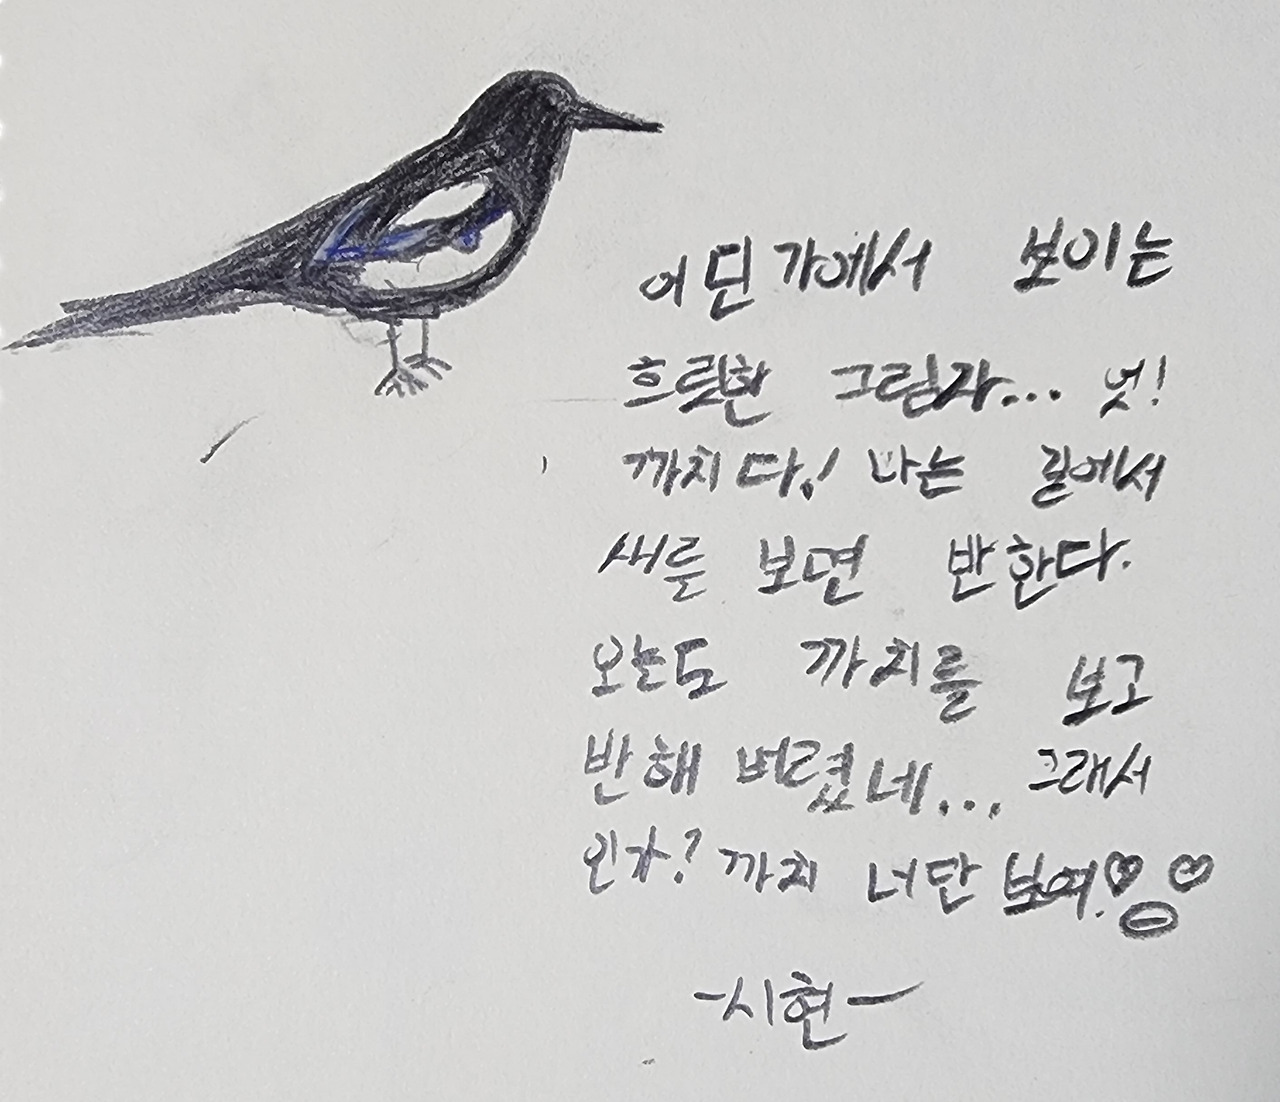 어딘가에서 보이는
흐릿한 그림자... 엇!
까치다! 나는 길에서
새를 보면 반한다.
오늘도 까치를 보고
반해 버렸네... 그래서
인가? 까치 너만 보여!
-시현-